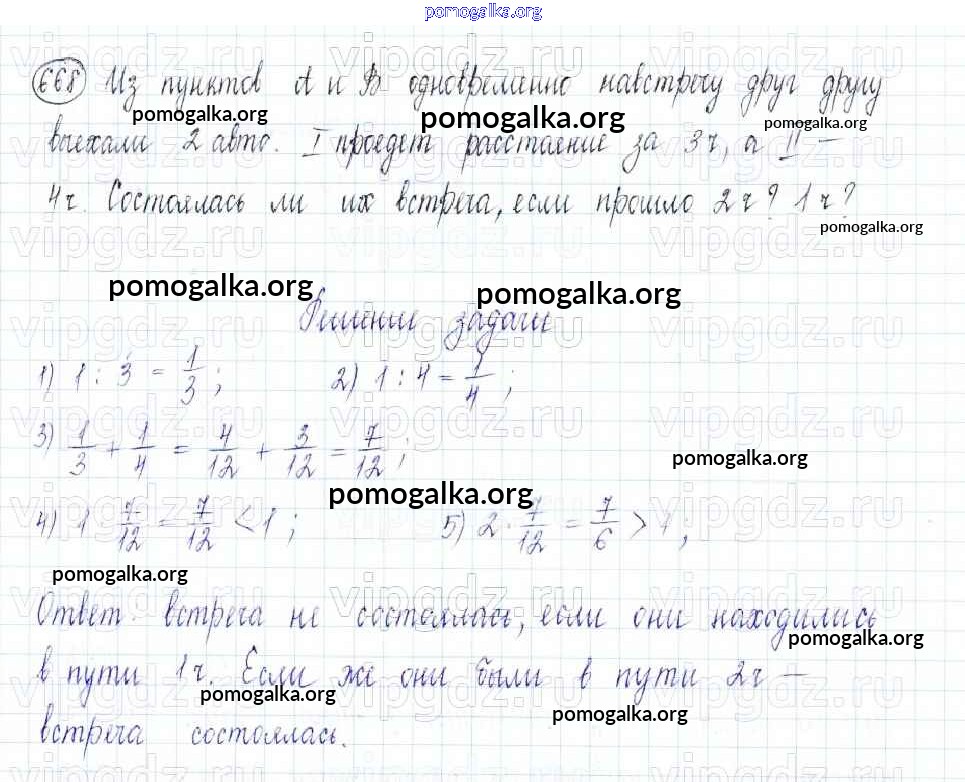 pomogalka.org
668 Из пунктов А и В одновременно навстречу друг другу
pomogalka.org pomogalka.org pomogalka.org
выехали 2 авто. I проедет расстояние за 3ч, а II –
4ч. Состоялась ли их встреча, если прошло 2ч? 1ч?
pomogalka.org
vipgdz.ru vipgdz.ru vipgdz.ru
pomogalka.org pomogalka.org
Решение задачи
1) 1 : 3 = 1/3; 2) 1 : 4 = 1/4;
3) 1/3 + 1/4 = 4/12 + 3/12 = 7/12;
pomogalka.org
pomogalka.org
4) 1 · 7/12 = 7/12 < 1; 5) 2 · 7/12 = 7/6 > 1;
pomogalka.org
Ответ: встреча не состоялась, если они находились
pomogalka.org
в пути 1ч. Если же они были в пути 2ч –
pomogalka.org
pomogalka.org
встреча состоялась.